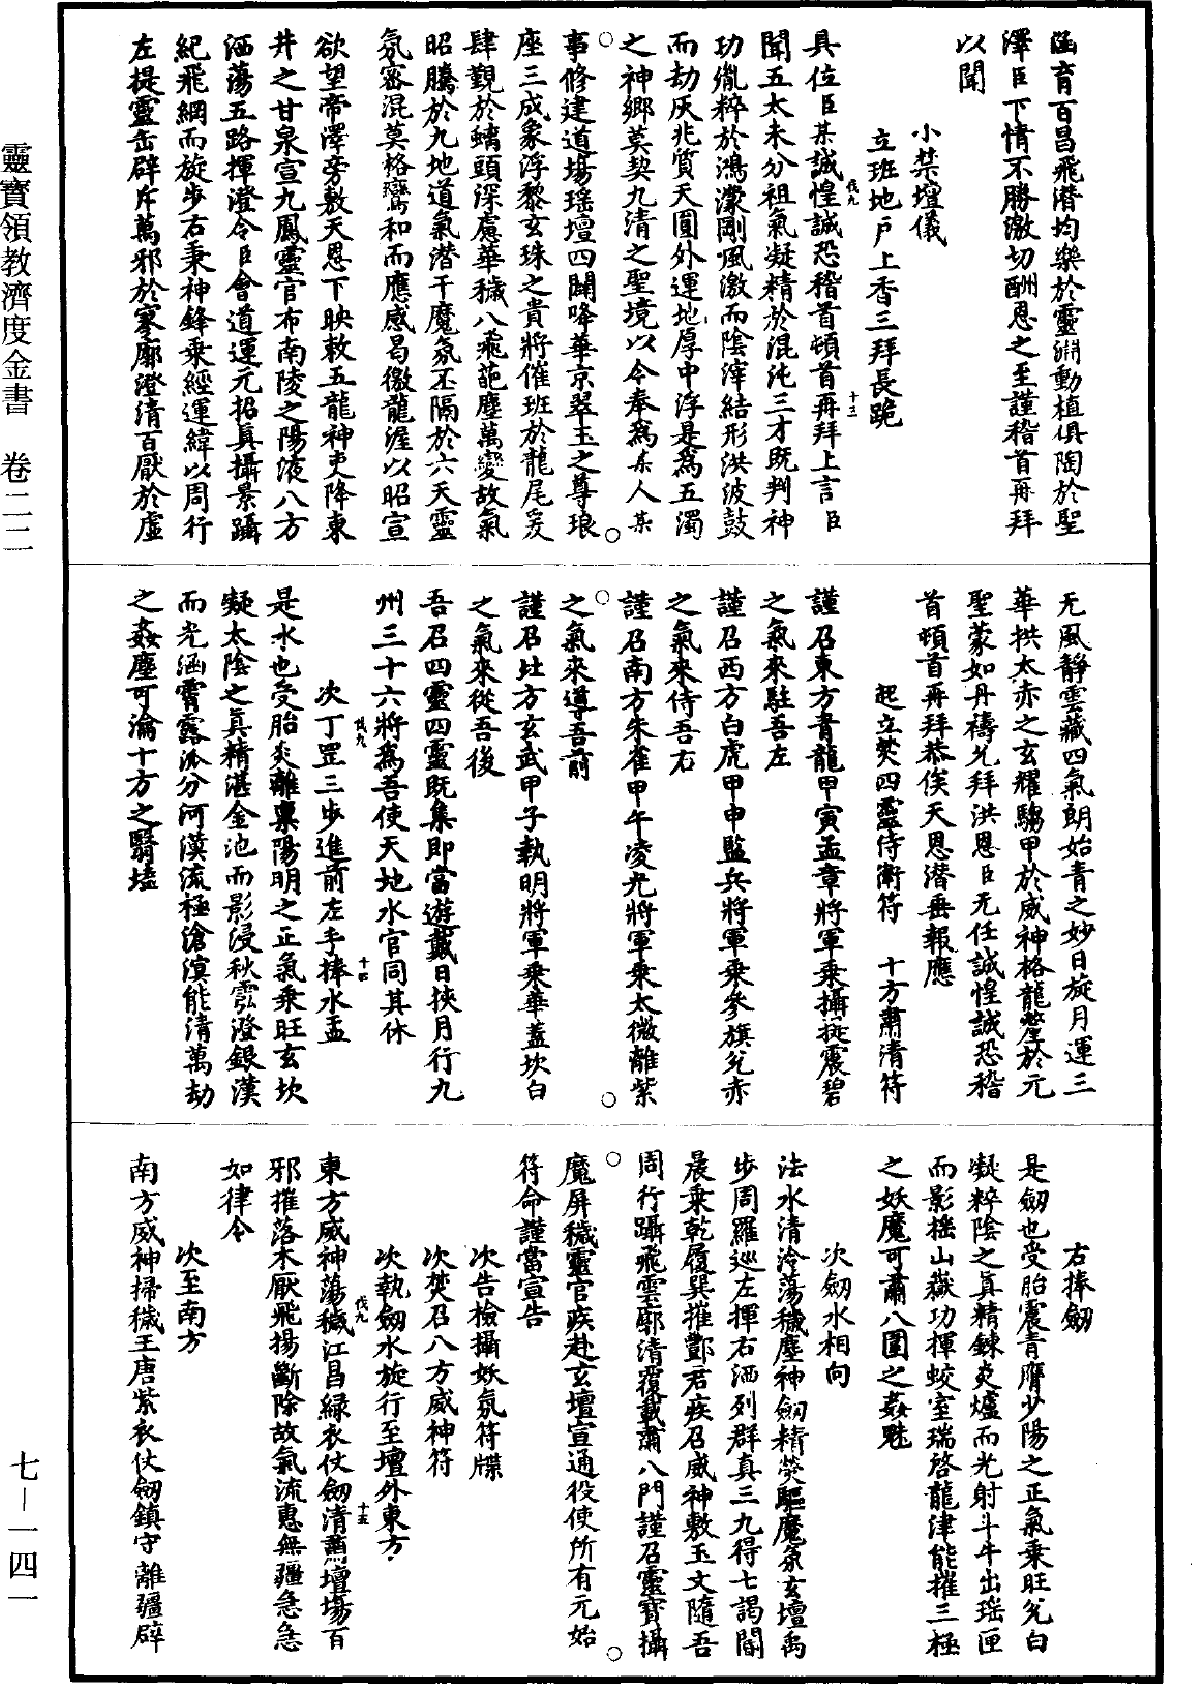 函育百昌飛潛均樂於靈淵動植俱陶於聖
澤臣下情不勝激切酬恩之至謹稽首再拜
以聞
小禁壇儀
立班地戶上香三拜長跪
具位臣某誠惶誠恐稽首頓首再拜上言臣
聞五太未分祖氣凝精於混沌三才既判神
功胤粹於鴻濛剛風激而陰滓結形洪波鼓
而劫灰兆質天圓外運地厚中浮是為五濁
之神鄉莫契九清之聖境以今奉為某人某
事修建道場瑤壇四闢峰華京翠玉之尊琅
座三成象浮黎玄珠之貴將催班於龍尾爰
肆覲於螭頭深慮華穢八飛葩塵萬變故氣
昭騰於九地道氣潛干魔氛丕隔於六天靈
氛密混莫格鸞和而應感曷徼龍渥以昭宣
欲望帝澤旁敷天恩下映敕五龍神吏降東
井之甘泉宣九鳳靈官布南陵之陽液八方
洒蕩五路揮澄令臣會道運元招真攝景躡
紀飛綱而旋步右秉神鋒乘經運緯以周行
左提靈缶辟斥萬邪於寥廓澄清百厭於虛
无風靜雲藏四氣朗始青之妙日旋月運三
華拱太赤之玄耀騶甲於威神格龍鑾於元
聖蒙如丹禱允拜洪恩臣无任誠惶誠恐稽
首頓首再拜恭俟天恩潛垂報應
起立焚四靈侍衛符　十方肅清符
謹召東方青龍甲寅孟章將軍乘攝提震碧
之氣來駐吾左
謹召西方白虎甲申監兵將軍乘參旗兌赤
之氣來侍吾右
謹召南方朱雀甲午凌光將軍乘太微離紫
之氣來導吾前
謹召北方玄武甲子執明將軍乘華蓋坎白
之氣來從吾後
吾召四靈四靈既集即當遊戴日挾月行九
州三十六將為吾使天地水官同其休
次丁罡三步進前左手捧水盂
是水也受胎炎離稟陽明之正氣乘旺玄坎
凝太陰之真精湛金池而影浸秋雲澄銀漢
而光涵霄露派分河漠流極滄溟能清萬劫
之姦塵可瀹十方之翳壒
右捧劒
是劒也受胎震青膺少陽之正氣乘旺兌白
凝粹陰之真精鍊炎爐而光射斗牛出瑤匣
而影搖山嶽功揮蛟室瑞啓龍津能摧三極
之妖魔可肅八圍之姦魅
次劒水相向
法水清泠蕩穢塵神劒精熒驅魔氛玄壇禹
步周羅巡左揮右洒列群真三九得七謁閽
晨乘乾履巽摧酆君疾召威神敷玉文隨吾
周行躡飛雲廓清覆載肅八門謹召靈寶攝
魔屏穢靈官疾赴玄壇宣通役使所有元始
符命謹當宣告
次告檢攝妖氛符牒
次焚召八方威神符
次執劒水旋行至壇外東方
東方威神蕩穢江昌緑衣仗劒清肅壇場百
邪摧落木厭飛揚斷除故氣流惠無疆急急
如律令
次至南方
南方威神掃穢王唐紫衣仗劒鎮守離疆辟
靈寶領教濟度金書　卷二二
七－一四一